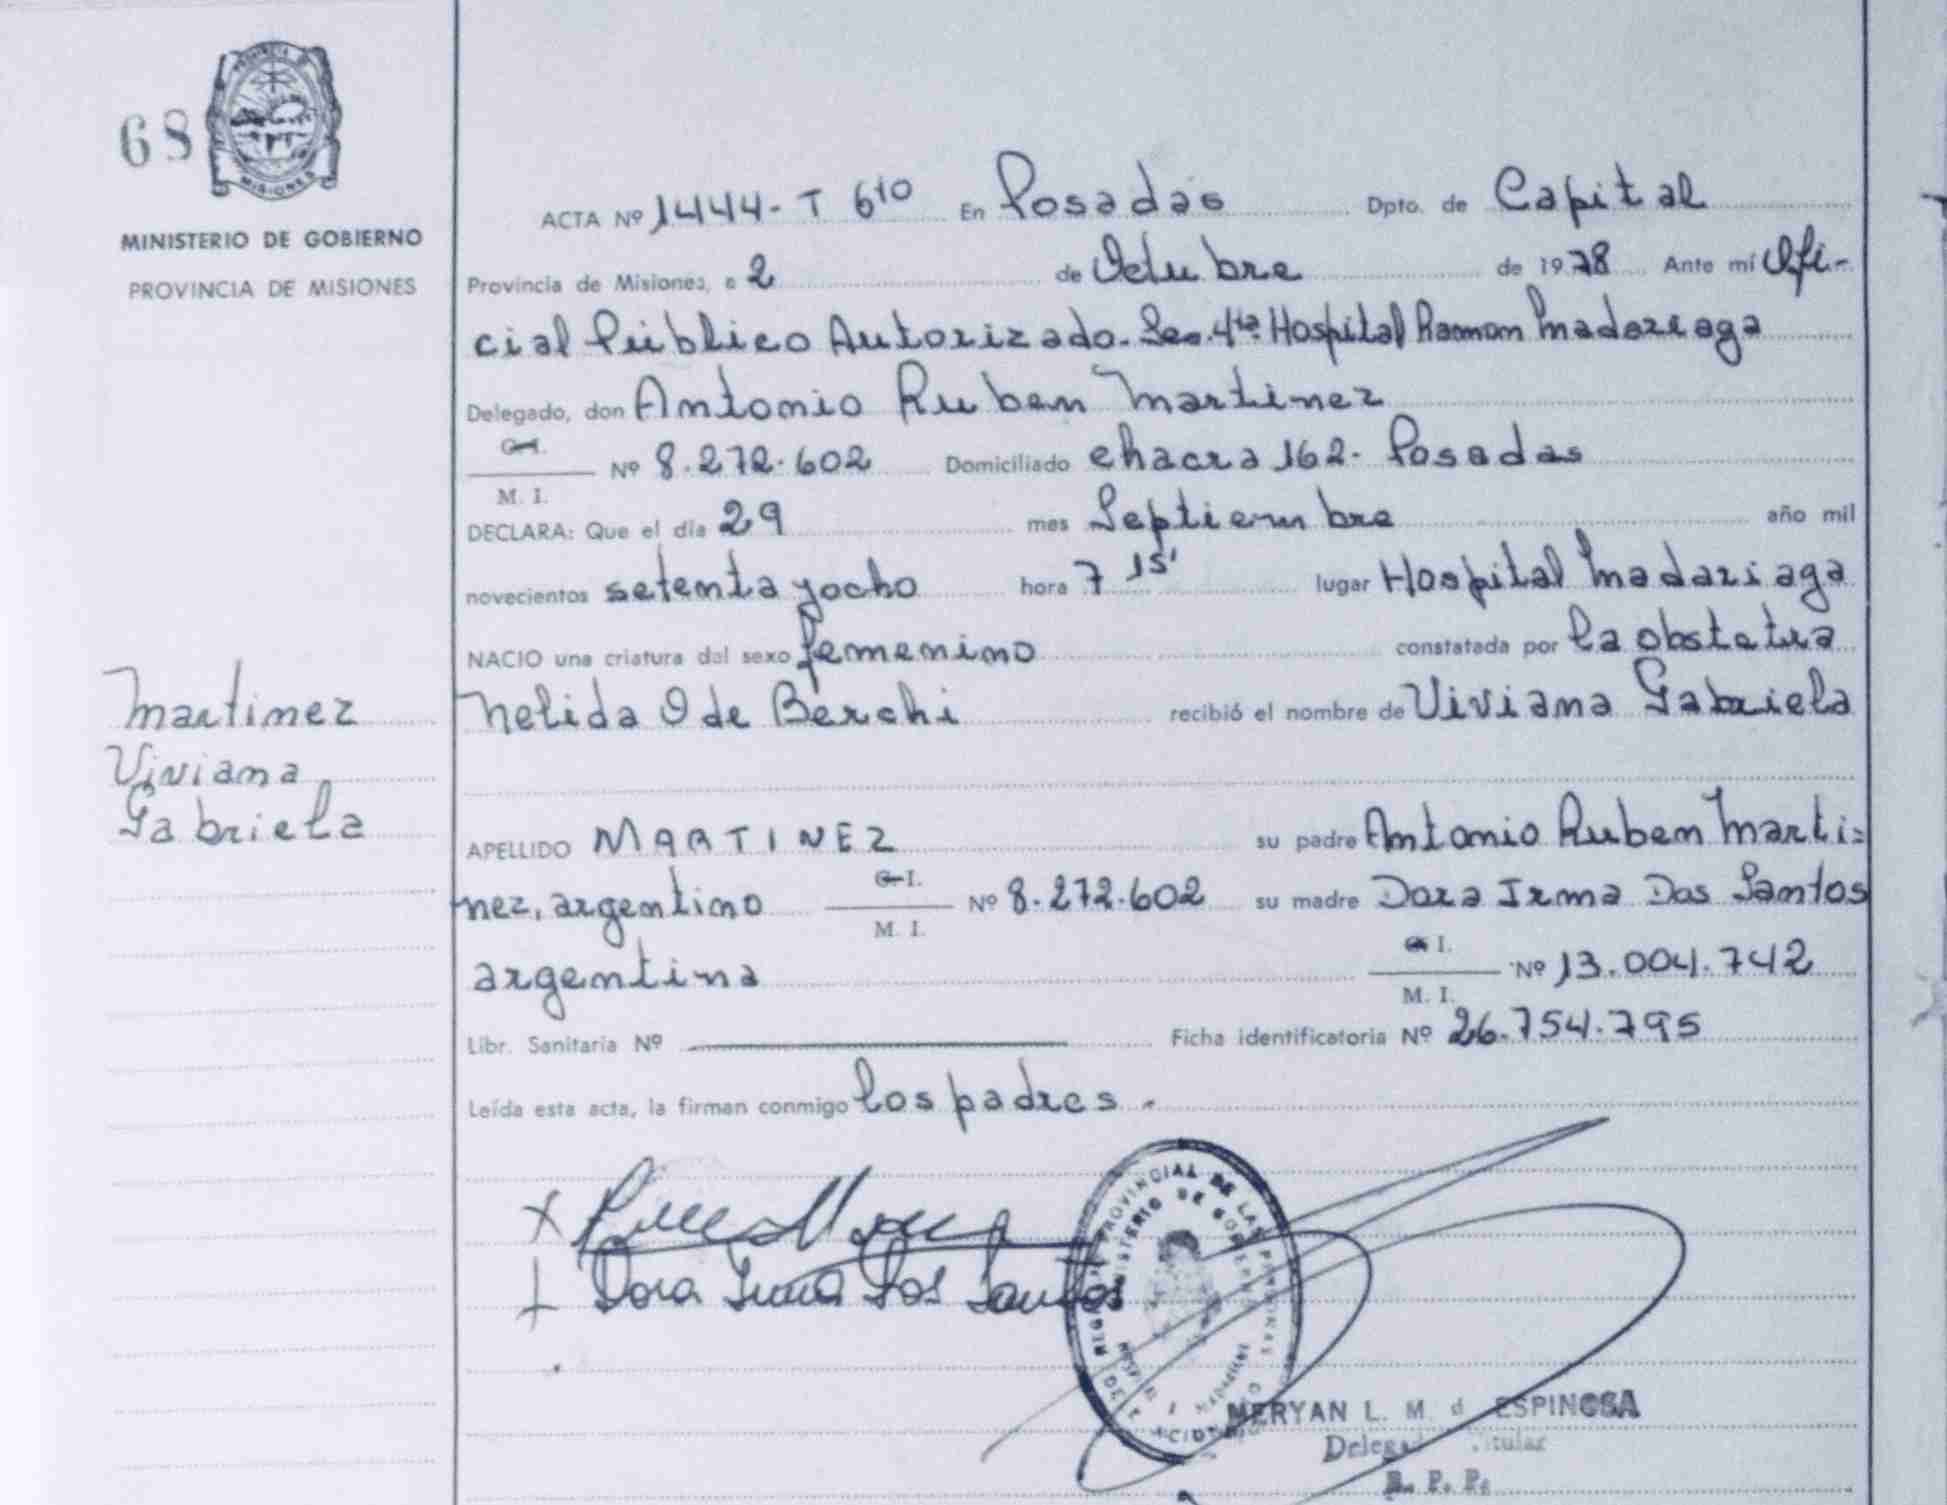 68
PROVINCIA DE
MISIONES
MINISTERIO DE GOBIERNO
PROVINCIA DE MISIONES
Martinez
Viviana
Gabriela
ACTA Nº 1444- T 6to En Posadas Dpto. de Capital
Provincia de Misiones, a 2 de Octubre de 1978 Ante mí Ofi-
cial Público Autorizado. Sec. 4ta Hospital Ramon Madariaga
Delegado, don Antonio Ruben Martinez
C. I.
Nº 8.272.602 Domiciliado chacra 162. Posadas
M. I.
DECLARA: Que el día 29 mes Septiembre año mil
novecientos setenta y ocho hora 7 15' lugar Hospital Madariaga
NACIO una criatura del sexo femenino constatada por la obstetra
Nelida O de Berchi recibió el nombre de Viviana Gabriela
APELLIDO MARTINEZ su padre Antonio Ruben Marti=
nez, argentino C. I. M. I. Nº 8.272.602 su madre Dora Irma Dos Santos
argentina C. I. M. I. Nº 13.004.742
Libr. Sanitaria Nº Ficha identificatoria Nº 26.754.795
Leída esta acta, la firman conmigo los padres.
Dora Irma Dos Santos
REGISTRO PROVINCIAL DE LAS PERSONAS
MINISTERIO DE GOBIERNO
MERYAN L. M. d ESPINOSA
Delegad Titular
R. P. P.